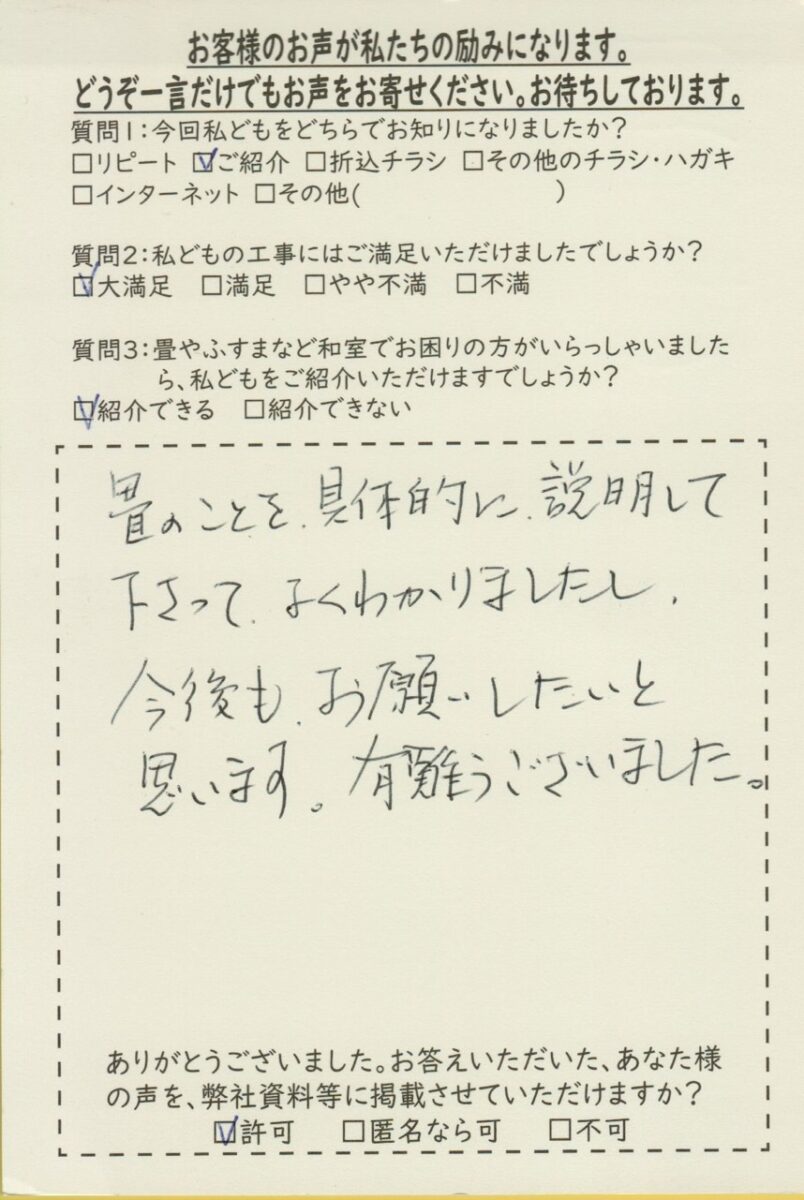 お客様のお声が私たちの励みになります。
どうぞ一言だけでもお声をお寄せください。お待ちしております。
質問1:今回私どもをどちらでお知りになりましたか?
□リピート ☑ご紹介 □折込チラシ □その他のチラシ・ハガキ
□インターネット □その他( )
質問2:私どもの工事にはご満足いただけましたでしょうか?
☑大満足 □満足 □やや不満 □不満
質問3:畳やふすまなど和室でお困りの方がいらっしゃいました
ら、私どもをご紹介いただけますでしょうか?
☑紹介できる □紹介できない
畳のことを、具体的に、説明して
下さって、よくわかりましたし、
今後も、お願いしたいと
思います。有難うございました。
ありがとうございました。お答えいただいた、あなた様
の声を、弊社資料等に掲載させていただけますか?
☑許可 □匿名なら可 □不可